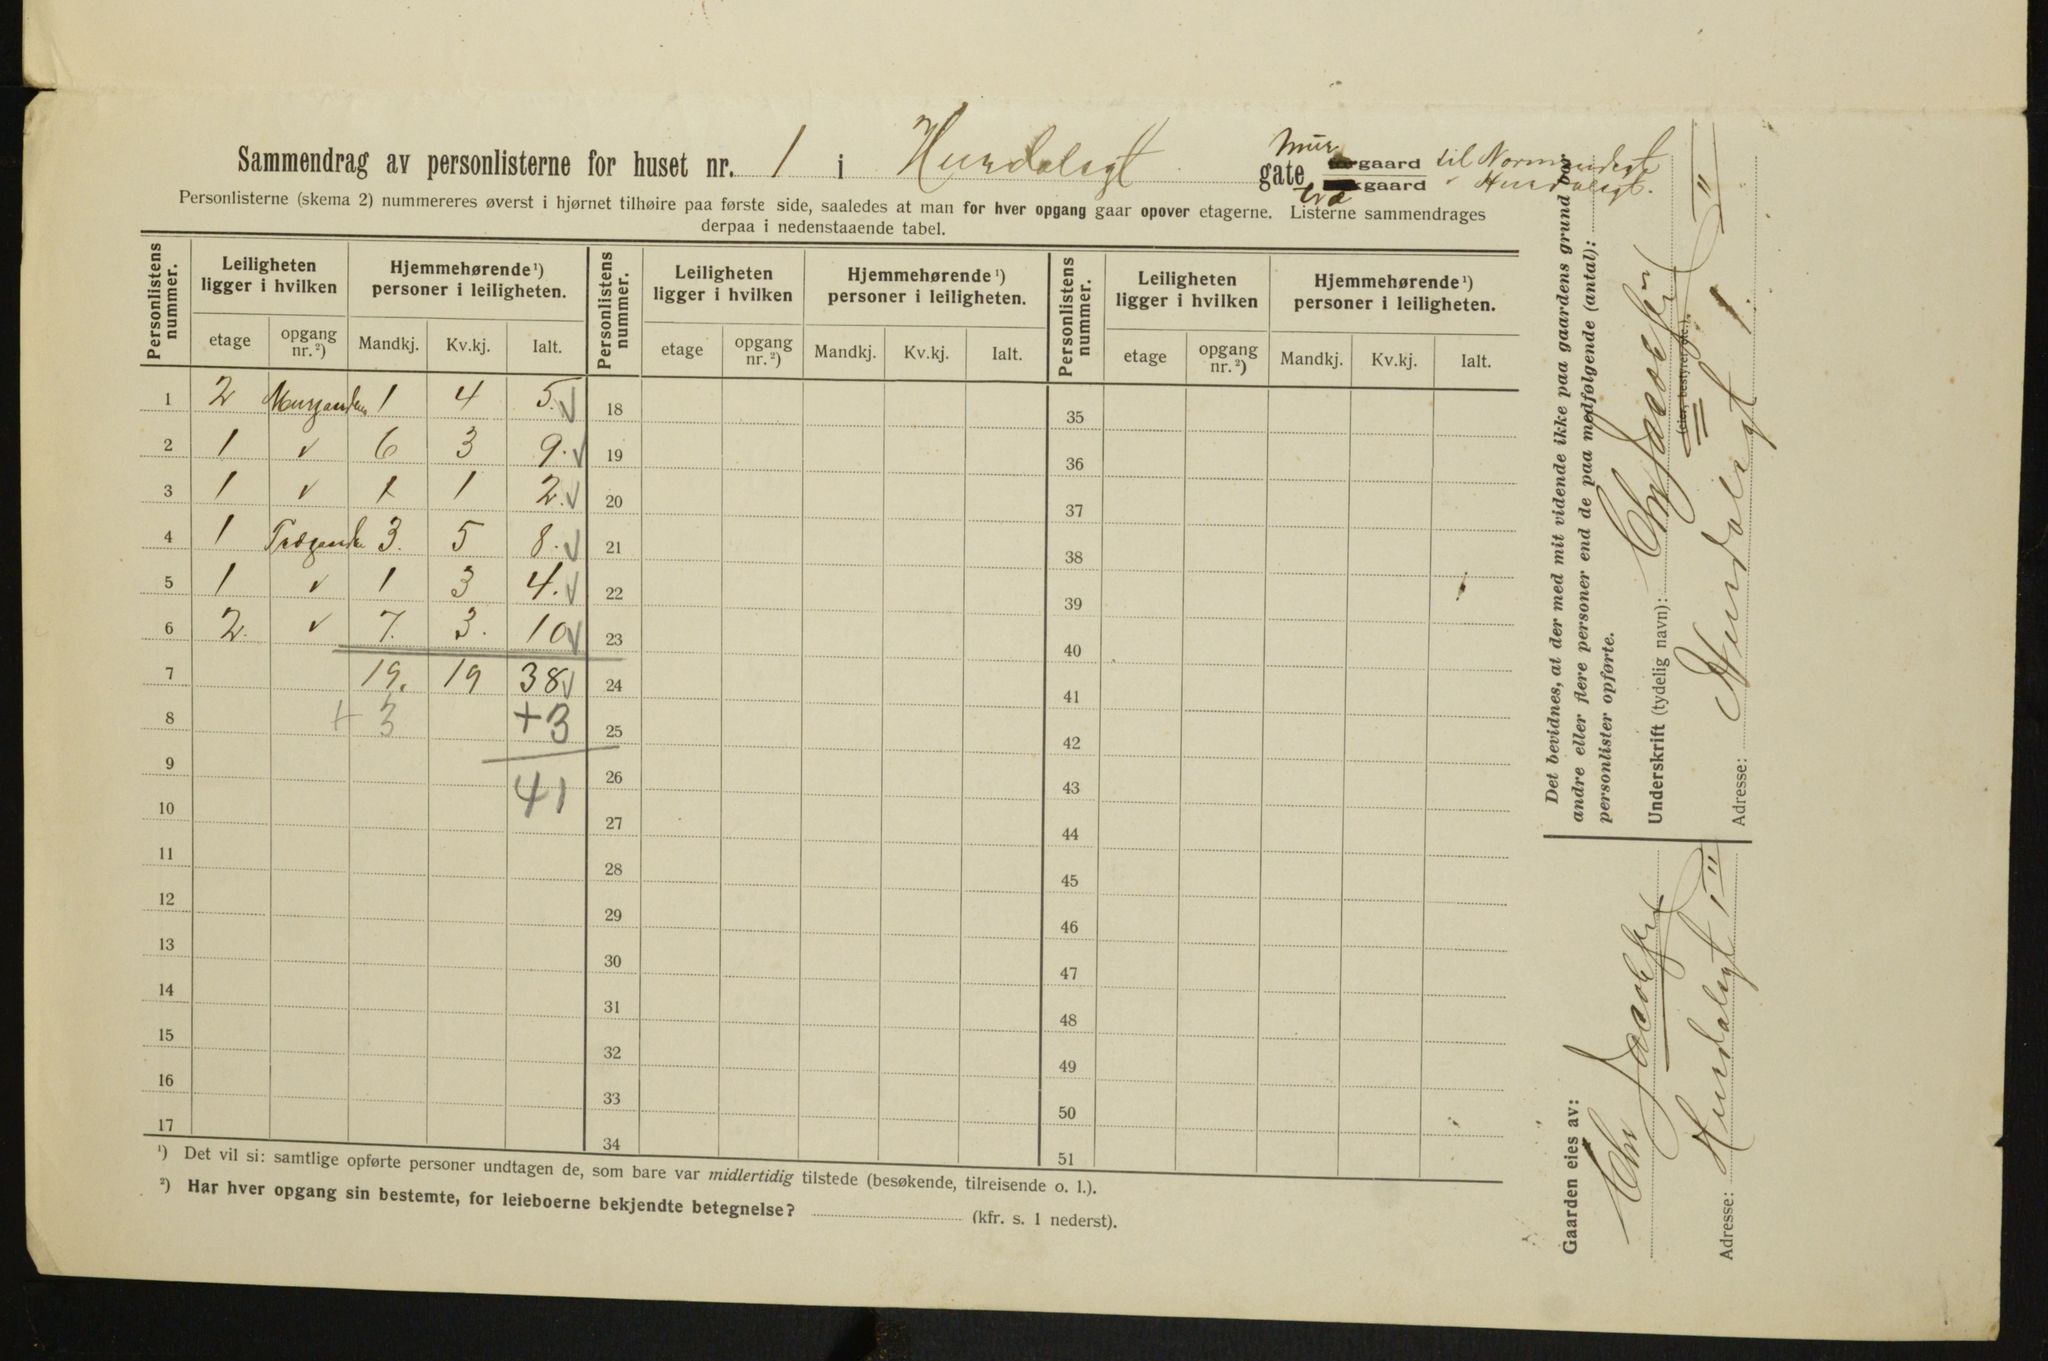 Sammendrag av personlisterne for huset nr. 1 i Hurdalsgt gate Mur gaard til Normandsgt
Træ gaard " Hurdalsgt.
Personlisterne (skema 2) nummereres øverst i hjørnet tilhøire paa første side, saaledes at man for hver opgang gaar opover etagerne. Listerne sammendrages
derpaa i nedenstaaende tabel.
Personlistens nummer. Leiligheten ligger i hvilken Hjemmehørende ¹) personer i leiligheten. Personlistens nummer. Leiligheten ligger i hvilken Hjemmehørende ¹) personer i leiligheten. Personlistens nummer. Leiligheten ligger i hvilken Hjemmehørende ¹) personer i leiligheten.
etage opgang nr. ²) Mandkj. Kv.kj. Ialt. etage opgang nr. ²) Mandkj. Kv.kj. Ialt. etage opgang nr. ²) Mandkj. Kv.kj. Ialt.
1 2 Murgaarden 1 4 5. 18 35
2 1 v 6 3 9. 19 36
3 1 v 1 1 2. 20 37
4 1 Trægaarden 3. 5 8. 21 38
5 1 v 1 3 4. 22 39
6 2. v 7. 3. 10 23 40
7 19. 19 38 24 41
8 + 3 + 3 25 42
9 41 26 43
10 27 44
11 28 45
12 29 46
13 30 47
14 31 48
15 32 49
16 33 50
17 34 51
¹) Det vil si: samtlige opførte personer undtagen de, som bare var midlertidig tilstede (besøkende, tilreisende o. l.).
²) Har hver opgang sin bestemte, for leieboerne bekjendte betegnelse? (kfr. s. 1 nederst).
Det bevidnes, at der med mit vidende ikke paa gaardens grund bor
andre eller flere personer end de paa medfølgende (antal):
personlister opførte.
Underskrift (tydelig navn): Chr Jacobsen
(eier, bestyrer etc.).
Adresse: Hurdalsgt 1
Gaarden eies av:
Chr Jacobsen
Adresse: Hurdalsgt 1